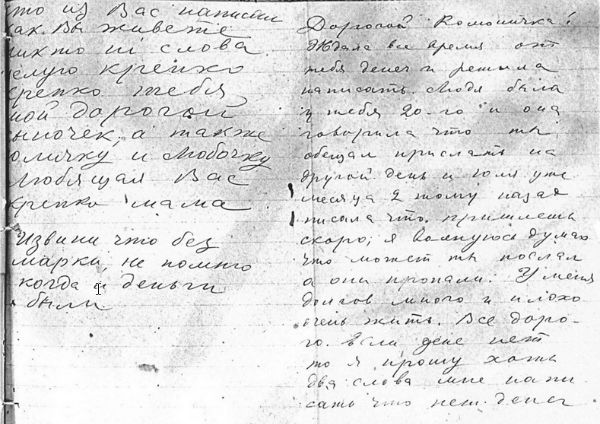 то из Вас
ак Вы живете
икто ни слова
елую крепко
репко тебя
мой дорогой
ыночек, а также
омичку и Любочку
Любящая Вас
крепко мама.
Извини что без
марки, не помню
когда и деньги
были
Дорогой
Ждала все время от
тебя денег и решила
написать. Людя была
у тебя 20-го и она
говорила что ты
обещал прислать на
другой день и уже
месяца 2 тому назад
писала что пришлешь
скоро, я волнуюсь думаю
что может ты послал
а они пропали. У меня
долгов много и плохо
очень жить. Все доро-
го. если дене нет
то я прошу хотя
два слова мне напи
сать что нет денег